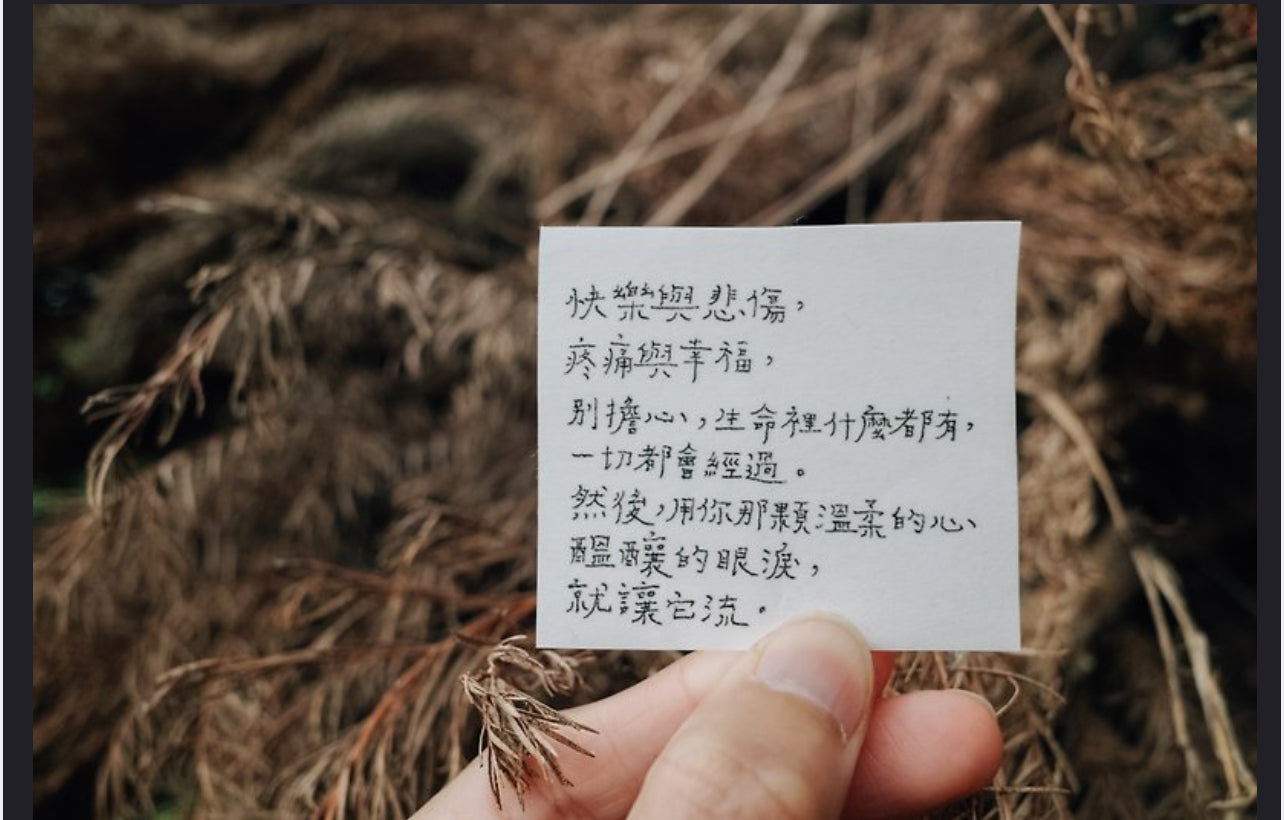 快樂與悲傷，
疼痛與幸福，
別擔心，生命裡什麼都有，
一切都會經過。
然後，用你那顆溫柔的心
醞釀的眼淚，
就讓它流。